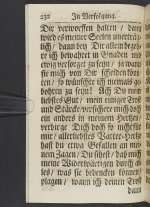 232 In Verfolgung.
Dir verworffen halten / dann
wird es meiner Seelen unerträg-
lich / dann bey Dir allein begeh-
re ich bewahret in Gnaden und
ewig versorget zu seyn / ja wann
sie mich von Dir scheiden könn-
ten / so wünschte ich niemals ge-
bohren zu seyn! Ach Du mein
liebstes Gut / mein einiger Trost
und Stärcke versichere mich doch
ein anders in meinem Hertzen /
verbirge Dich doch so nicht für
mir / allerliebstes Vatter-Hertz
hast du etwa Gefallen an mei-
nem Zagen / Du siehest / daß mich
meine Widerwärtigen durch al-
les / was sie bedencken können
plagen / wann ich deinen Trost
dann